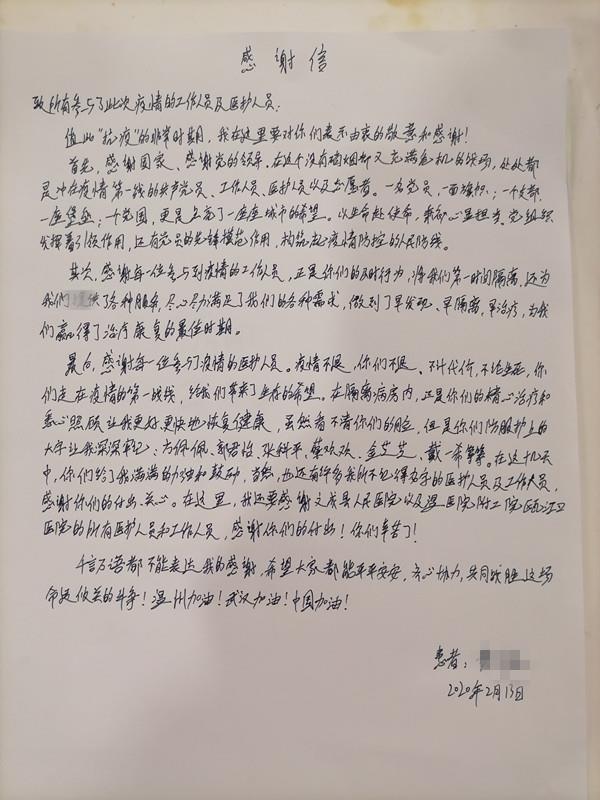 感谢信
致所有参与了此次疫情的工作人员及医护人员：
值此“抗疫”的非常时期，我在这里要对你们表示由衷的敬意和感谢！
首先，感谢国家、感谢党的领导。在这个没有硝烟却又充满危机的战场，处处都
是冲在疫情第一线的共产党员、工作人员、医护人员以及志愿者。一名党员，一面旗帜；一个支部，
一座堡垒；一个党团，更是点亮了一座座城市的希望。以生命赴使命，彰初心显担当，党组织
发挥着引领作用，还有党员的先锋模范作用，构筑起疫情防控的人民防线。
其次，感谢每一位参与到疫情的工作人员，正是你们的及时行为，将我们第一时间隔离，还为
我们提供了各种服务，尽心尽力满足了我们的各种需求，做到了早发现、早隔离，早治疗，为我
们赢得了治疗康复的最佳时期。
最后，感谢每一位参与了疫情的医护人员。疫情不退，你们不退。不计代价，不论生死，你
们走在疫情的第一战线，给我们带来了生存的希望。在隔离病房内，正是你们的精心治疗和
悉心照顾让我更好更快地恢复健康，虽然看不清你们的脸，但是你们防服护上的
大字让我深深牢记：方佩佩、郭君怡、张科平、蔡欢欢、金芝芝、戴希等等。在这十几天
中，你们给了我满满的力量和鼓励，当然，也还有许多我所不记得名字的医护人员及工作人员，
感谢你们的付出、关心。在这里，我还要感谢文成县人民医院以及温医院附一院瓯江口
医院的所有医护人员和工作人员，感谢你们的付出！你们辛苦了！
千言万语都不能表达我的感谢，希望大家都能平平安安，齐心协力，共同战胜这场
命运攸关的斗争！温州加油！武汉加油！中国加油！
患者：
2020年2月13日